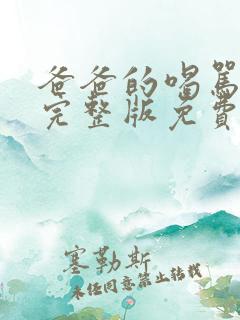 爸爸的喝罵
完整版免費
塞勒斯
未经同意禁止转载